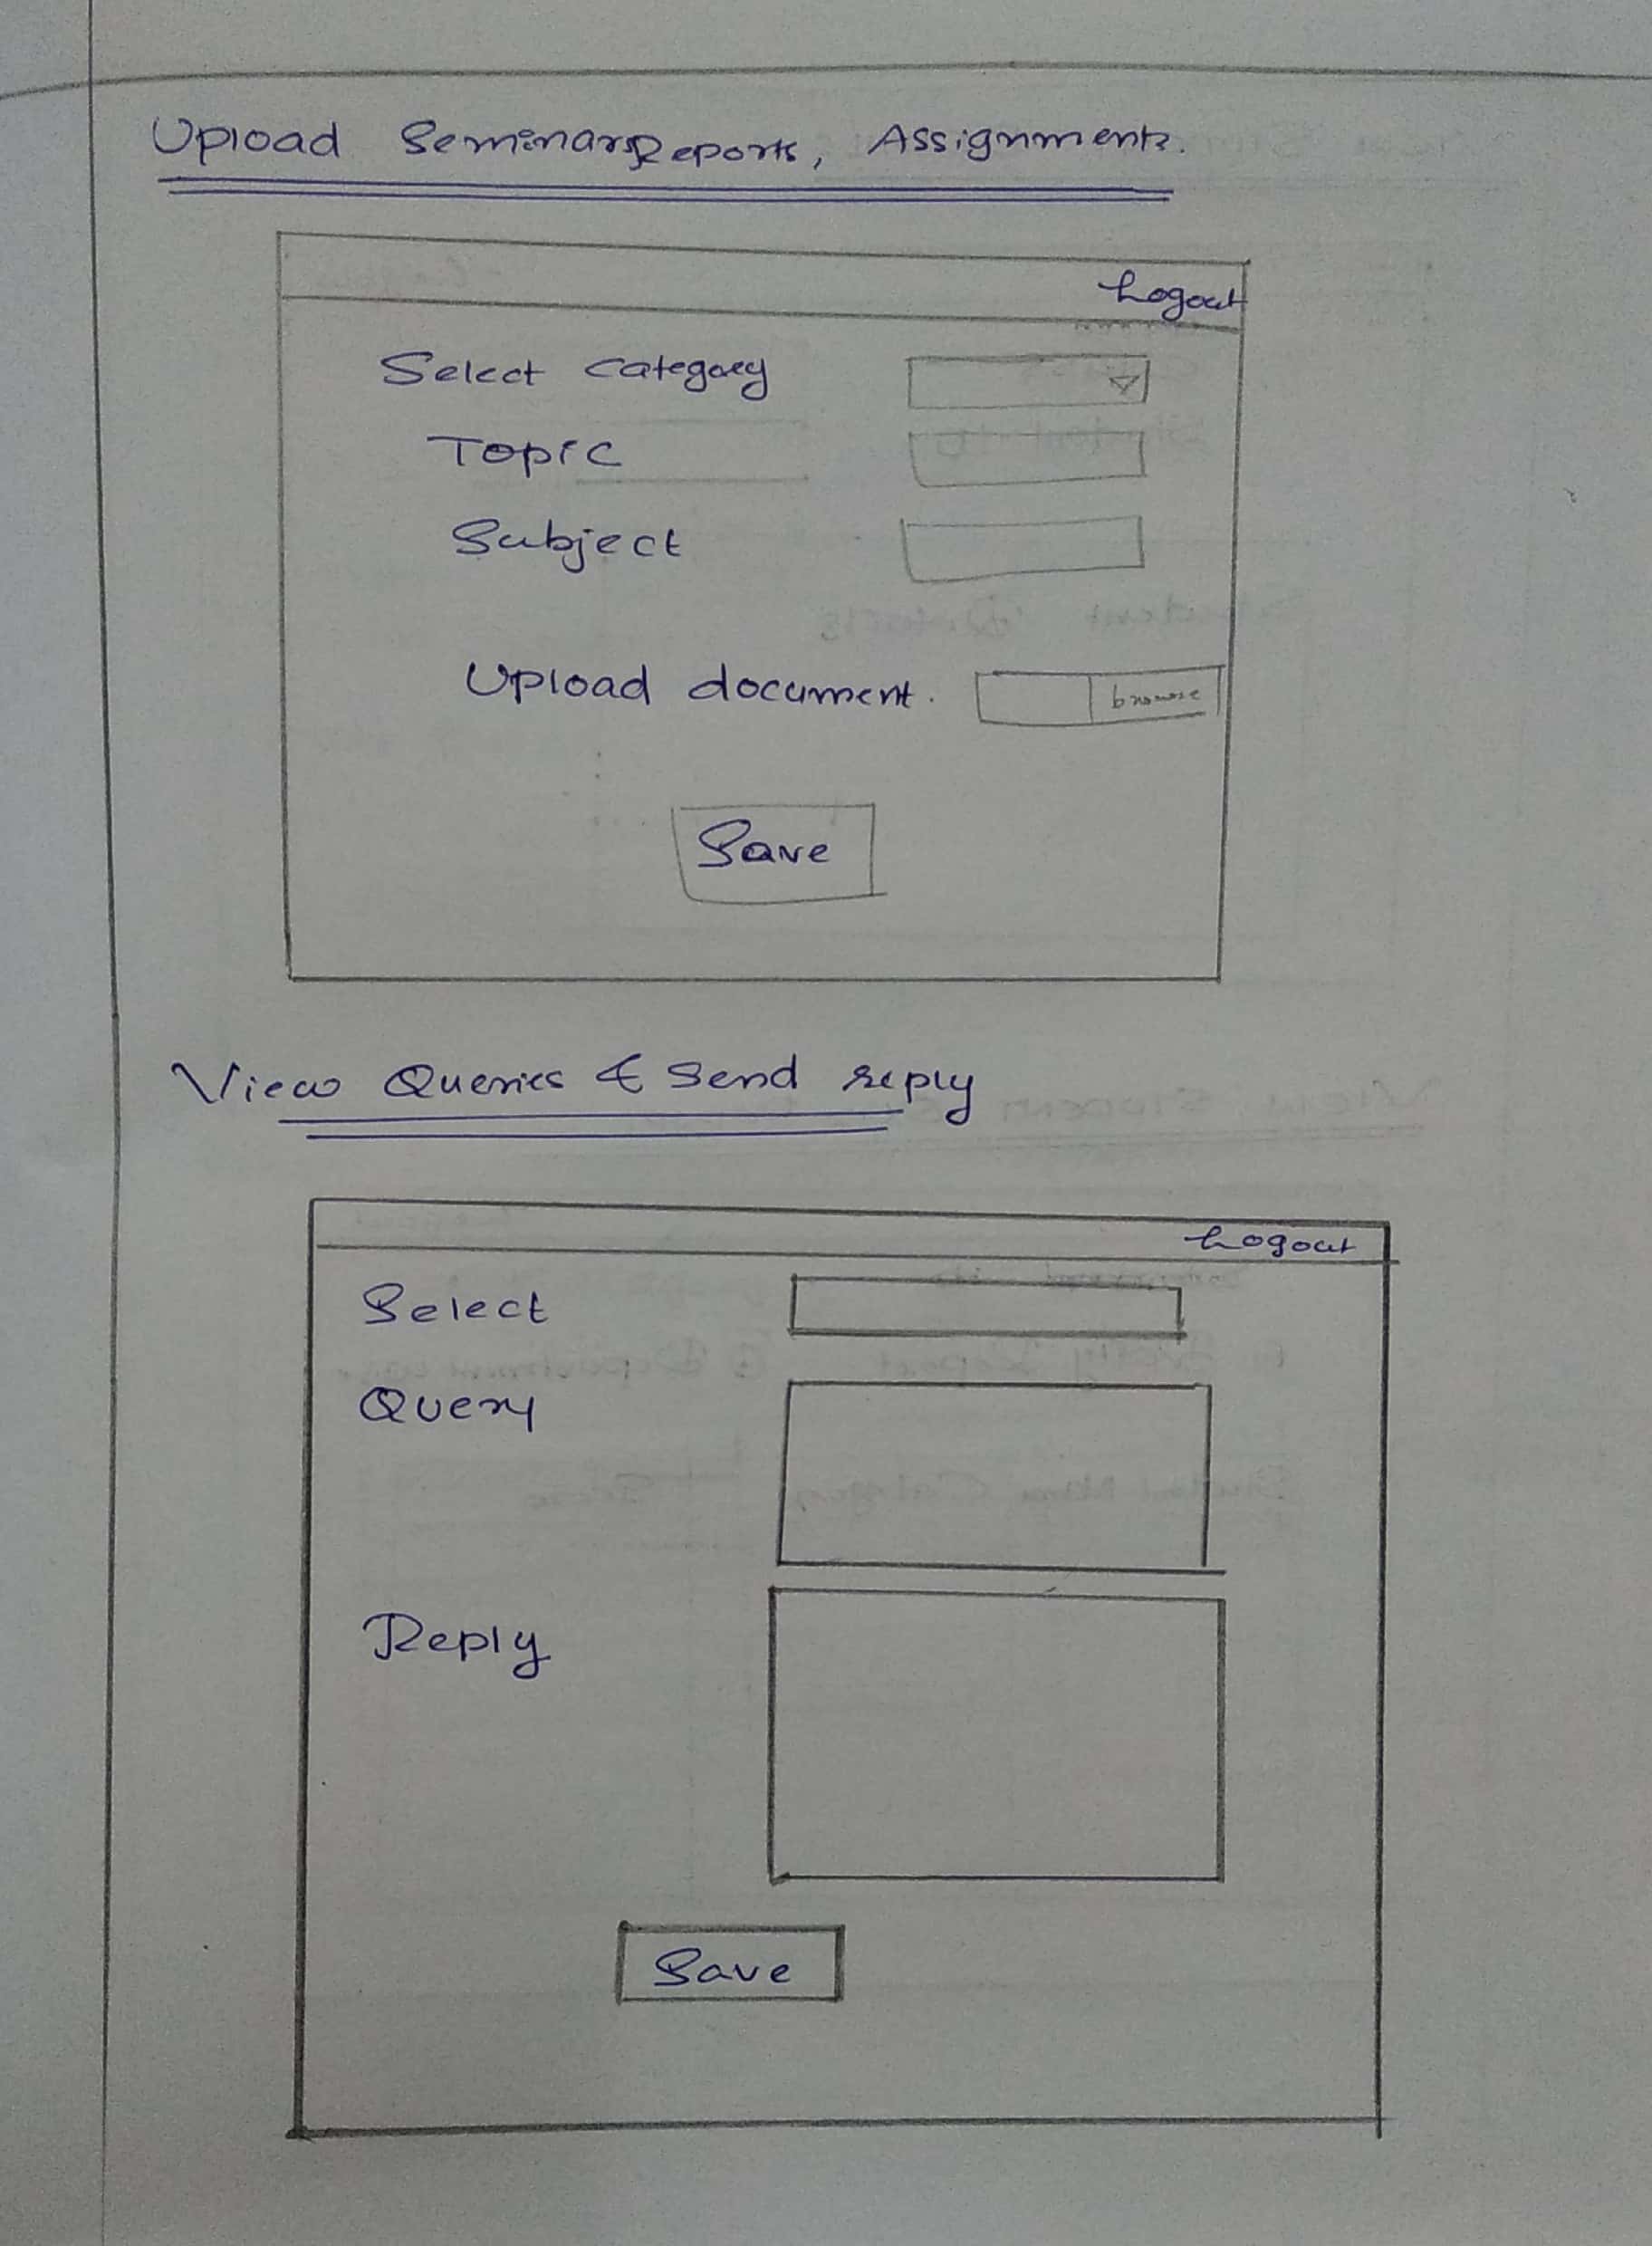 Upload Seminar Reports, Assignments.
Logout
Select Category
Topic
Subject
Upload document. browse
Save
View Queries & Send reply
Logout
Select
Query
Reply
Save